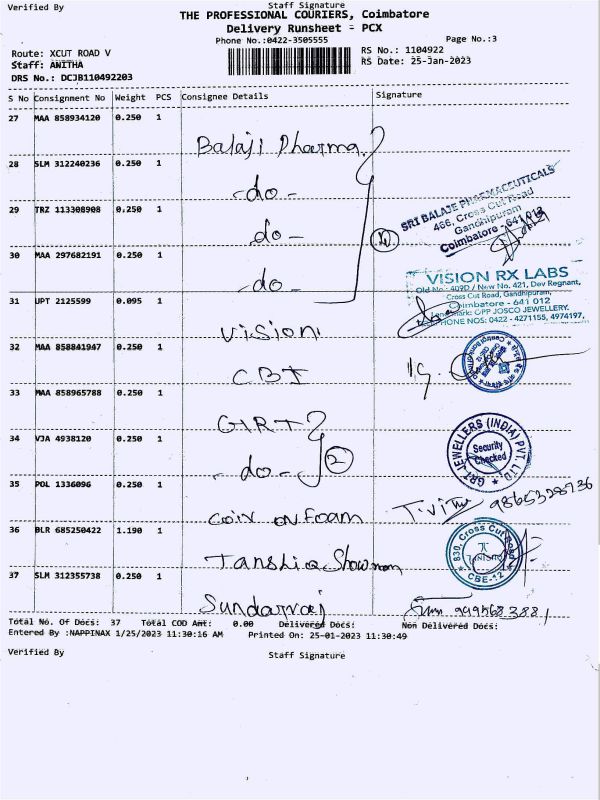 Verified By Staff Signature
THE PROFESSIONAL COURIERS, Coimbatore
Delivery Runsheet - PCX
Phone No.:0422-3505555 Page No.:3
Route: XCUT ROAD V RS No.: 1104922
Staff: ANITHA RS Date: 25-Jan-2023
DRS No.: DCJB110492203
S No Consignment No Weight PCS Consignee Details Signature
27 MAA 858934120 0.250 1
Balaji Pharma
28 SLM 312240236 0.250 1
-do-
SRI BALAJE PHARMACEUTICALS
466, Cross Cut Road
Gandhipuram
Coimbatore - 641 012
29 TRZ 113308908 0.250 1
-do-
30 MAA 297682191 0.250 1
-do-
VISION RX LABS
Old No.: 409D / New No. 421, Dev Regnant,
Cross Cut Road, Gandhipuram,
Coimbatore - 641 012
Landmark: OPP JOSCO JEWELLERY.
PHONE NOS: 0422 - 4271155, 4974197,
31 UPT 2125599 0.095 1
Vision
32 MAA 858841947 0.250 1
CBI
33 MAA 858965788 0.250 1
GRT
34 VJA 4938120 0.250 1
-do- 2
GRT JEWELLERS (INDIA) PVT. LTD.
Security
Checked
35 POL 1336096 0.250 1
Coir on Foam 9865328736
36 BLR 685250422 1.190 1
Tanshiq Showroom
830, Cross Cut Road
CBE-12
37 SLM 312355738 0.250 1
Sundarraj
Total No. Of Docs: 37 Total COD Amt: 0.00 Delivered Docs: Non Delivered Docs:
Entered By :NAPPINAX 1/25/2023 11:30:16 AM Printed On: 25-01-2023 11:30:49
Verified By Staff Signature